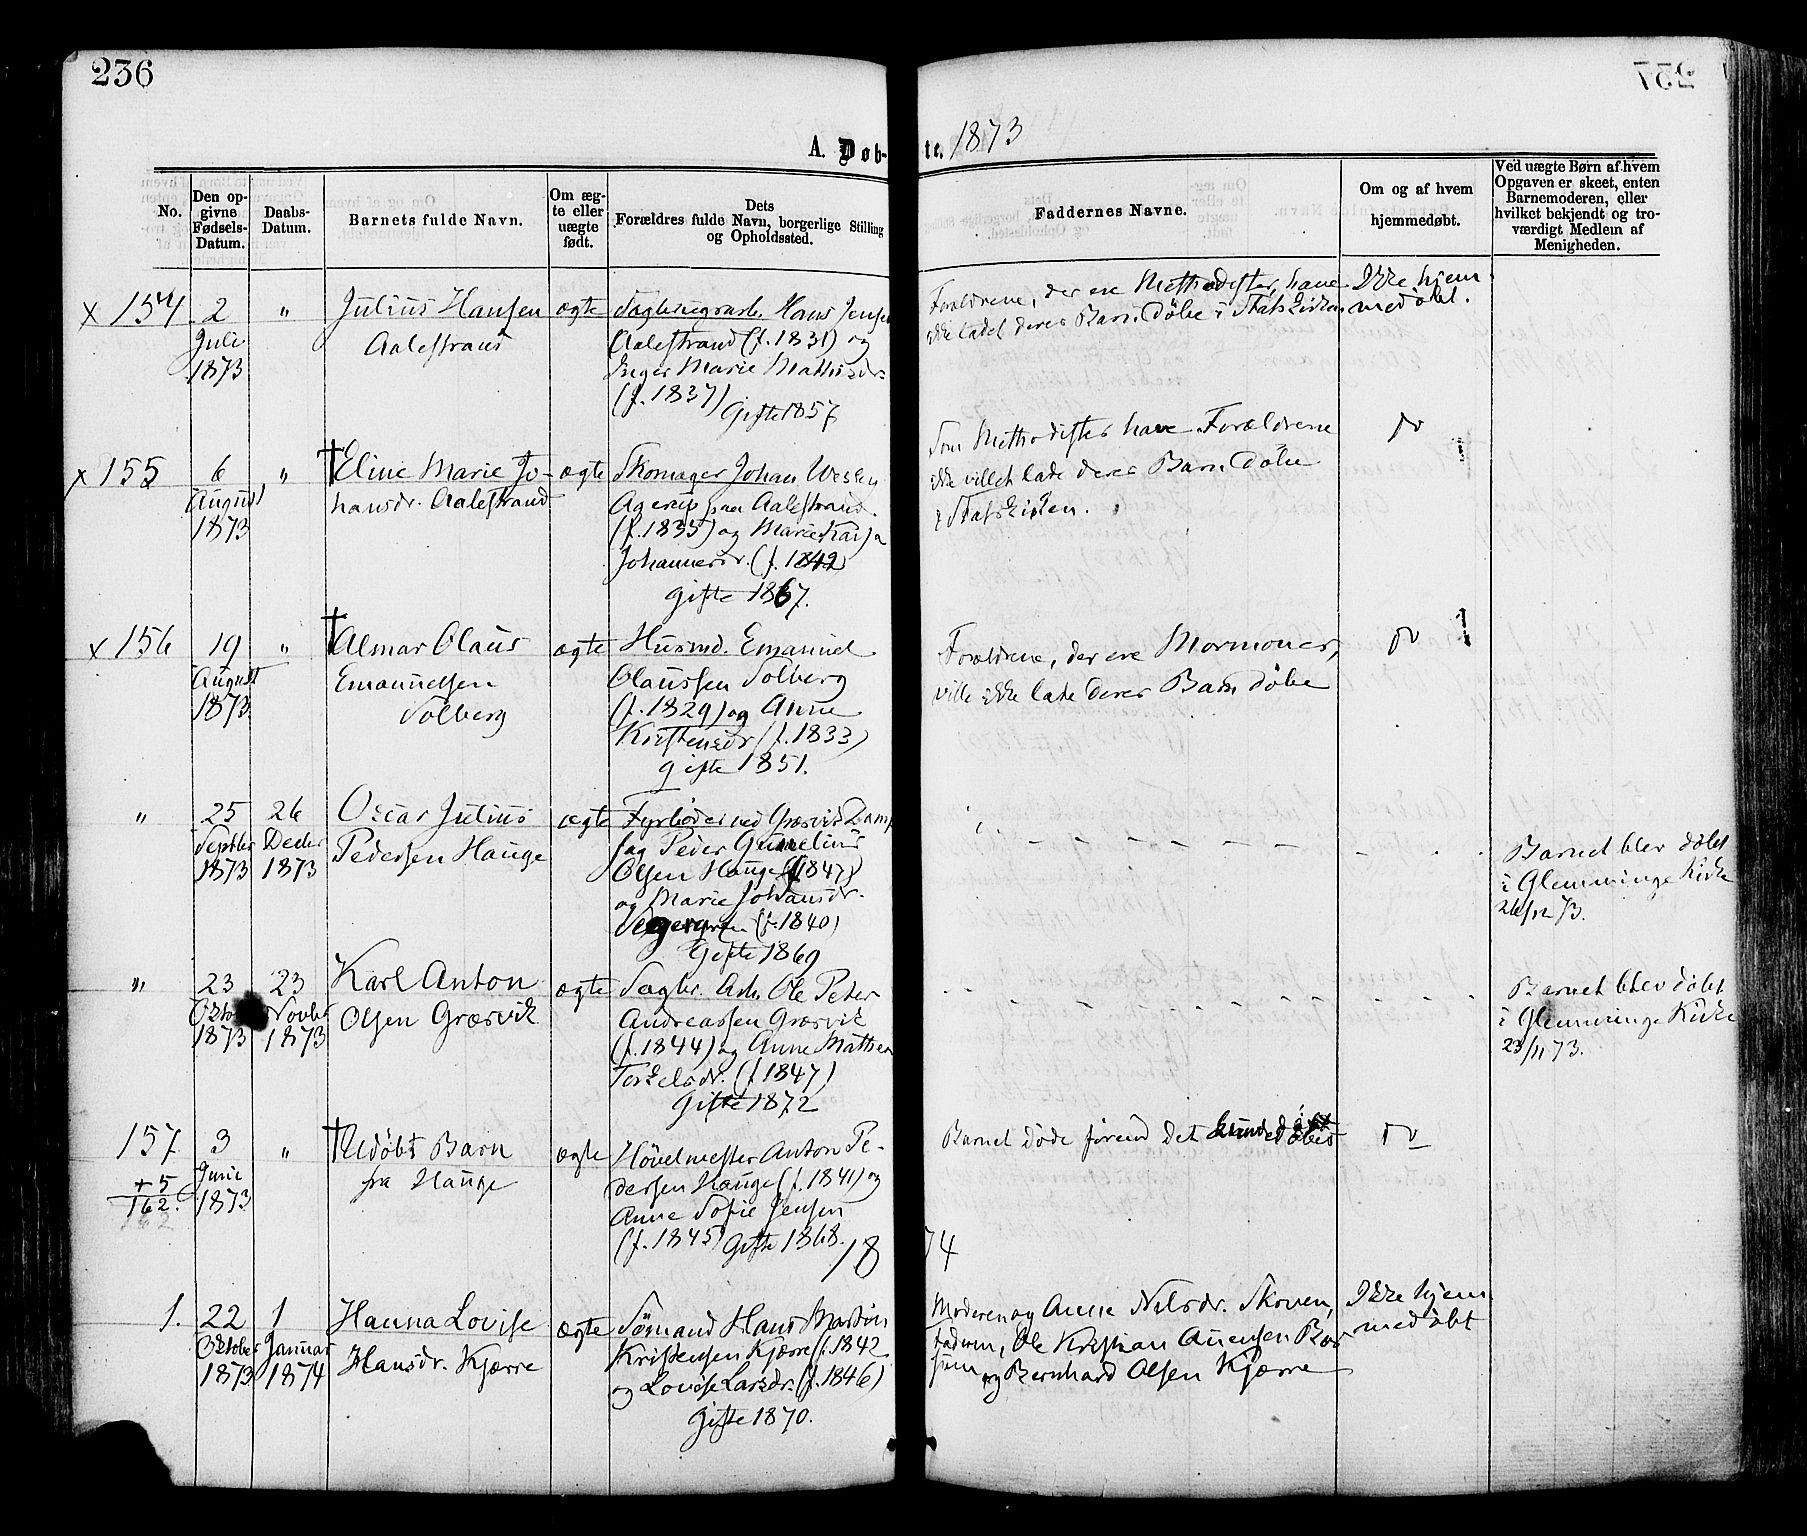 236
237
A. Døb-
te. 1873
No.
Den op-
givne
Fødsels-
Datum.
Daabs-
Datum.
Barnets fulde Navn.
Om æg-
te eller
uægte
født.
Dets
Forældres fulde Navn, borgerlige Stilling
og Opholdssted.
Faddernes Navne.
Om og af hvem
hjemmedøbt.
Ved uægte Børn af hvem
Opgaven er skeet, enten
Barnemoderen, eller
hvilket bekjendt og tro-
værdigt Medlem af
Menigheden.
x 154
2
Juli
1873
"
Julius Hansen
Aalestrand
ægte
Hans Jensen
Aalestrand (f. 1831) og
Inger Marie Mathisdr
(f. 1837)
Gifte 1857
Forældrene, der ere Methodister, have
ikke ladet deres Barn døbe i Statskirken
Ikke hjem-
medøbt.
x 155
6
August
1873
"
† Eline Marie Jo-
hansdr. Aalestrand
ægte
Skomager Johan Wesley
Agerup paa Aalestrand
(f. 1835) og Marie Kaisa
Johannesdr. (f. 1842)
gifte 1867.
Som Methodister have Forældrene
ikke villet lade deres Barn døbe
i Statskirken.
do
x 156
19
August
1873
"
† Almar Olaus
Emanuelsen
Solberg
ægte
Husmd. Emanuel
Olaussen Solberg
(f. 1829) og Anne
Kristensdr (f. 1833)
gifte 1851.
Forældrene, der ere Mormoner,
ville ikke lade deres Barn døbe
do
"
25
Septber
1873
26
Decbr
1873
Oscar Julius
Pedersen Hauge
ægte
Fyrbøder ved Græsvik Damp
sag Peder
Olsen Hauge (f. 1847)
og Marie Johansdr.
(f. 1840)
Gifte 1869
Barnet blev døbt
i Glemminge Kirke
26/12 73.
"
23
Oktor
1873
23
Novbr
1873
Karl Anton
Olsen Græsvik
ægte
Sagbr. Arb. Ole Peter
Andreassen Græsvik
(f. 1844) og Anne Mathea
Torkelsdr. (f. 1847)
Gifte 1872
Barnet blev døbt
i Glemminge Kirke
23/11 73.
157
+ 5
162.
162
3
Juni
1873
"
† Udøbt Barn
fra Hauge
ægte
Høvelmester Anton Pe-
dersen Hauge (f. 1841) og
Anne Sofie Jensen
(f. 1845) Gifte 1868.
Barnet døde førend det kunde døbes
do
1874
1.
22
Oktober
1873
1
Januar
1874
Hanna Lovise
Hansdr. Kjærre
ægte
Sømand Hans Martin
Kristensen Kjærre (f. 1842
og Lovise Larsdr. (f. 1846)
Gifte 1870.
Moderen og Anne Nilsdr. Skoven,
Faderen, Ole Kristian
og Bernhard Olsen Kjærre
Ikke hjem
medøbt